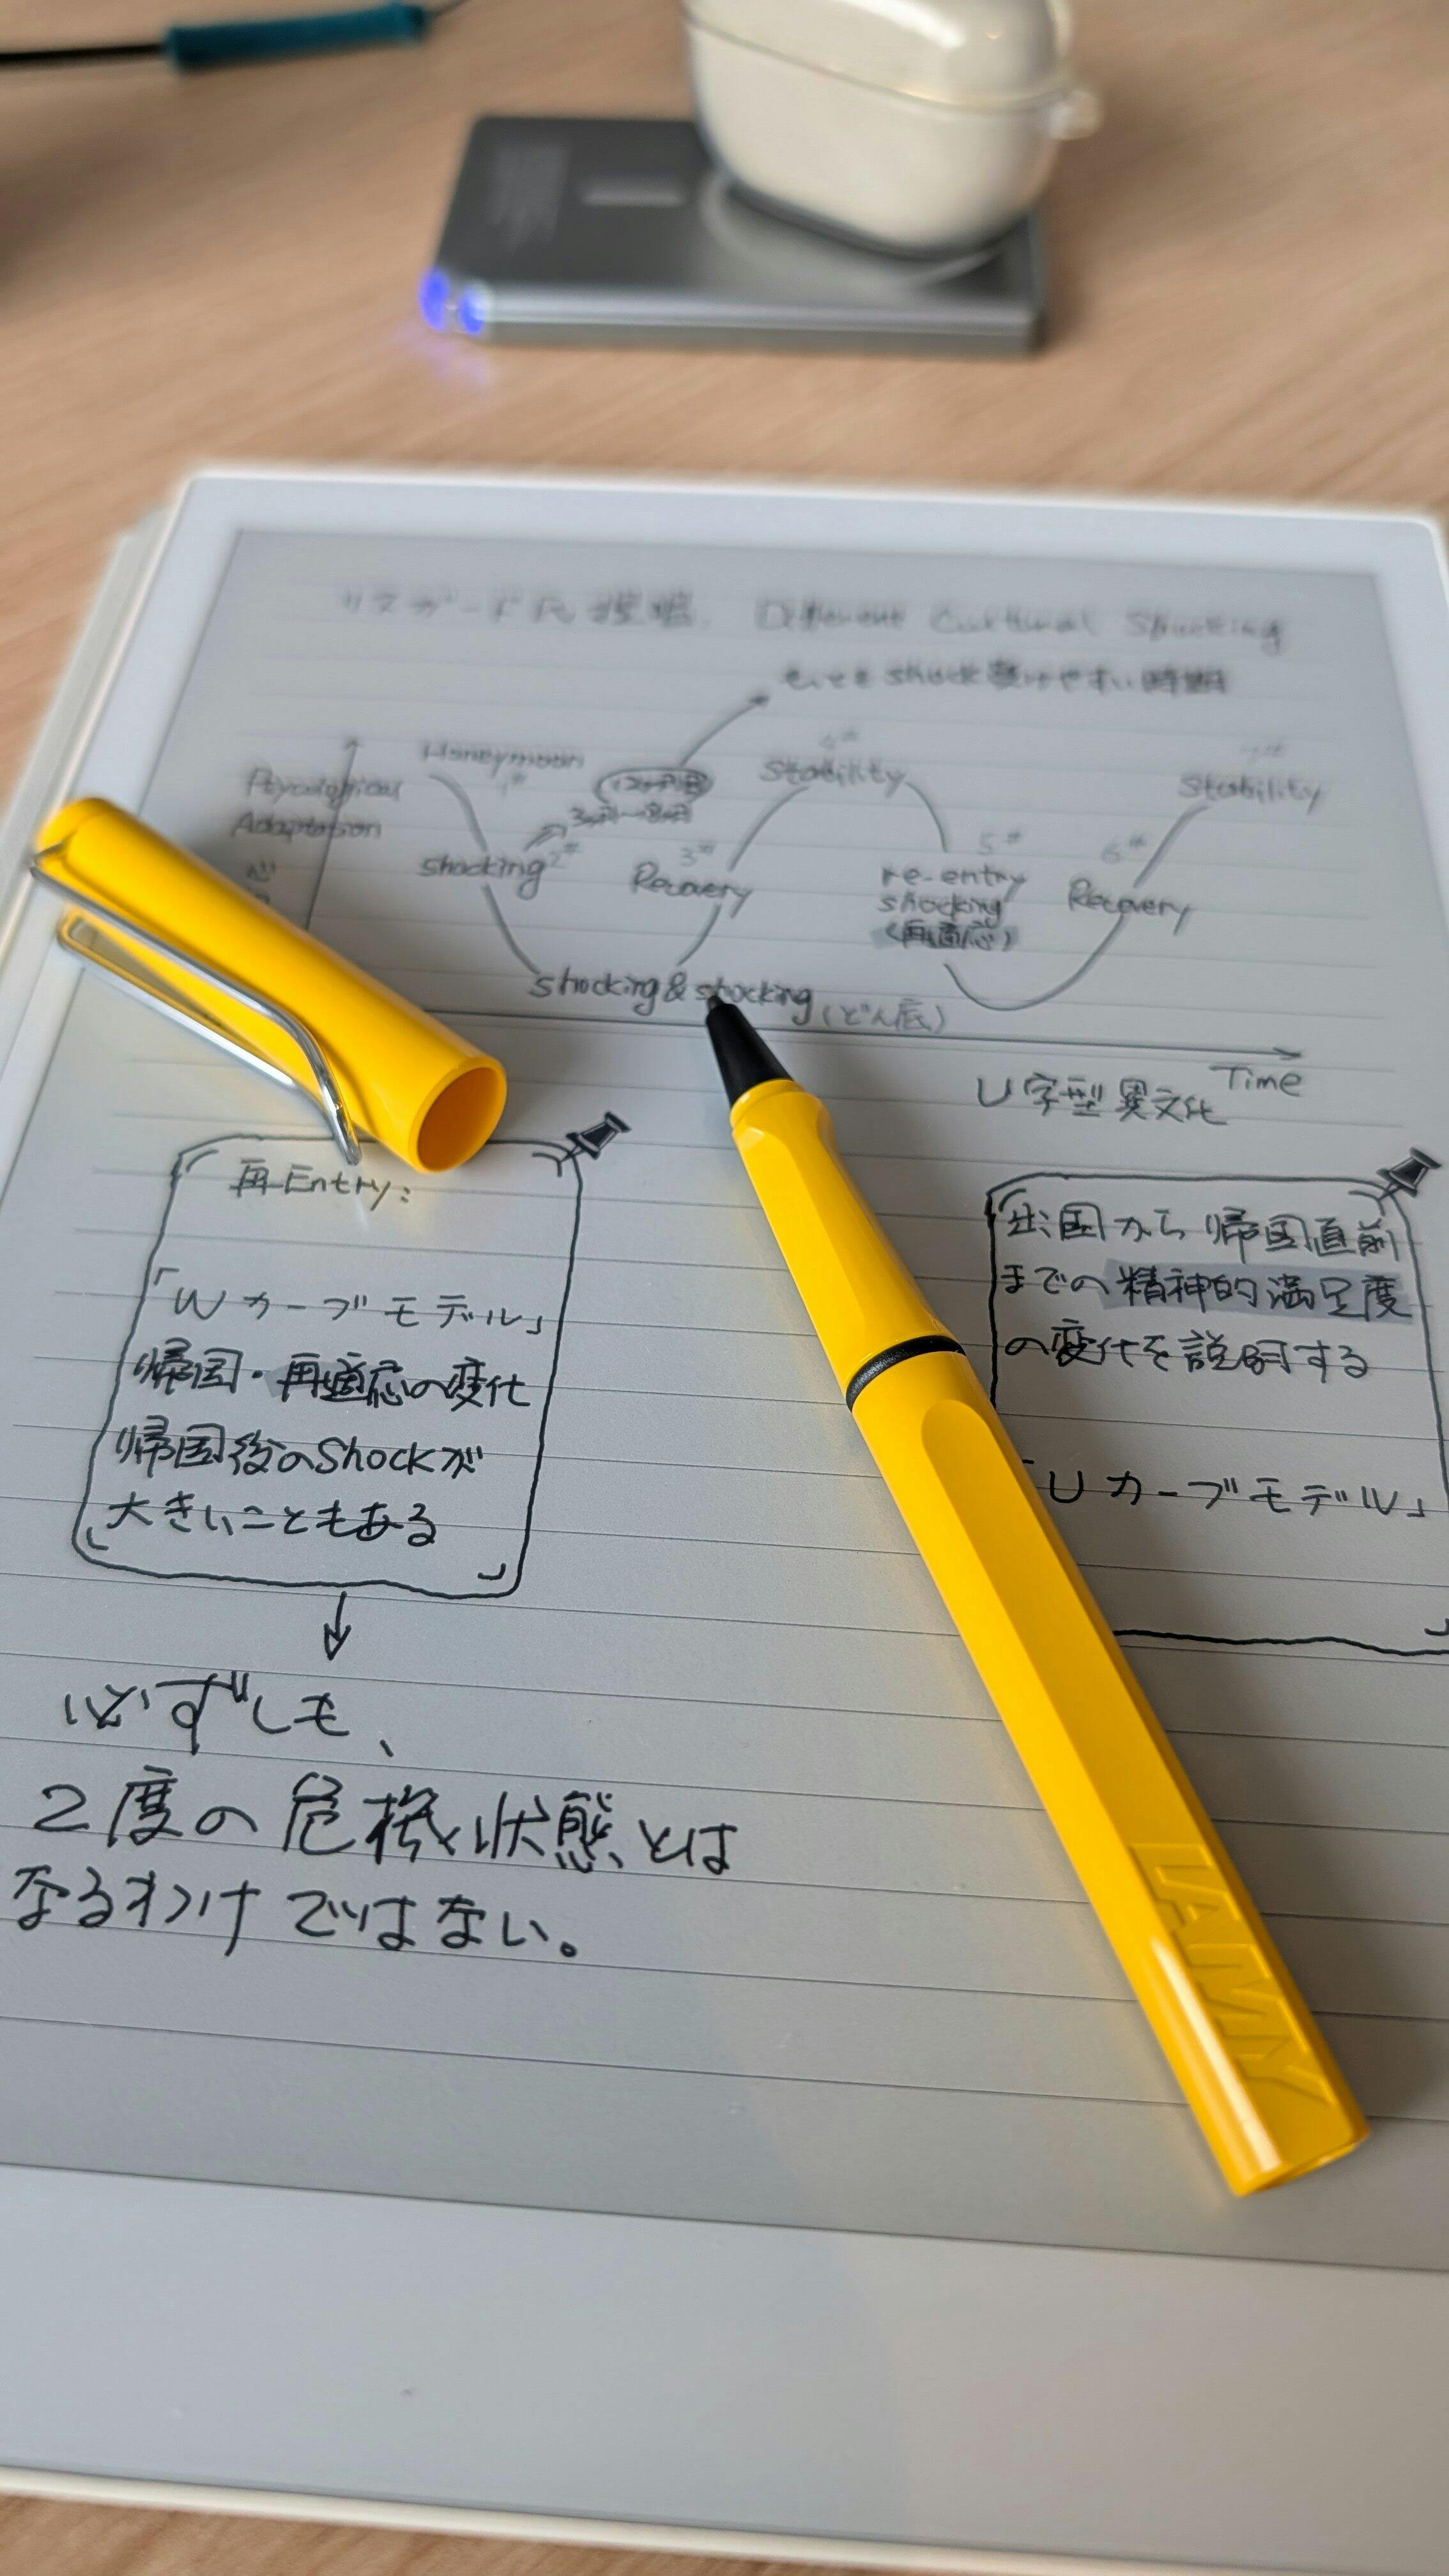 リスガード氏 理論. Different Cultural Shocking
もっとも shock 受けやすい時期
Honeymoon
1#
Stability
4#
Stability
Adaptation
shocking 2#
Recovery 3#
5#
re-entry
shocking
(再適応)
6#
Recovery
shocking & shocking (どん底)
Time
U字型異文化
再Entry:
「Wカーブモデル」
帰国・再適応の変化
帰国後のShockが
大きいこともある
出国から帰国直前
までの精神的満足度
の変化を説明する
「Uカーブモデル」
必ずしも、
2度の危機状態とは
なるわけではない。
LAMY